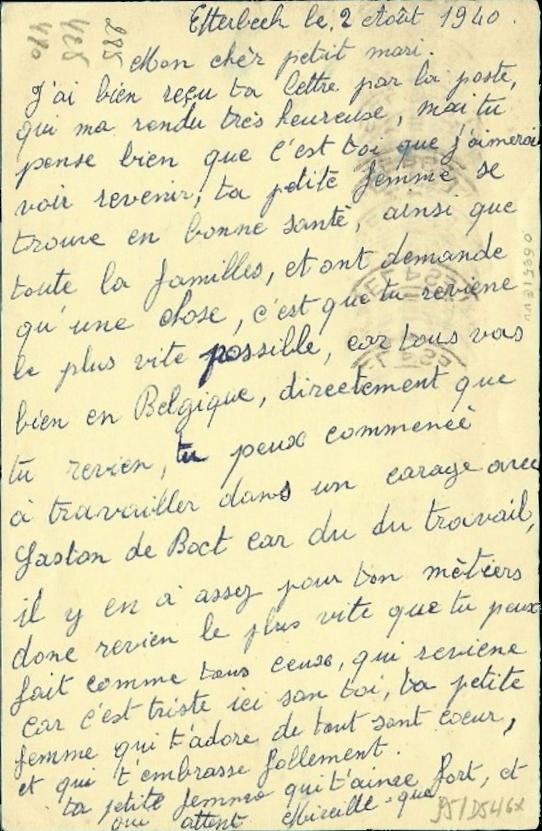 Etterbeek le, 2 Août 1940.
Mon chèr petit mari.
J'ai bien reçu ta lettre par la poste,
qui ma rendu très heureuse, mai tu
pense bien que c'est toi que j'aimerai
voir revenir, ta petite femme se
trouve en bonne santé, ainsi que
toute la familles, et ont demande
qu'une chose, c'est que tu reviene
le plus vite possible, car tous vas
bien en Belgique, directement que
tu revien, tu peux commencé
à travailler dans un garage avec
Gaston de Boct car du du travail,
il y en a assez pour ton mètiers
donc revien le plus vite que tu peux
fait comme tous ceuse, qui reviene
car c'est triste ici san toi, ta petite
femme qui t'adore de tout sont coeur,
et qui t'embrasse follement.
ta petite femme qui t'aime fort, et
qui attent Mireille que
285
425
480
95/D546x